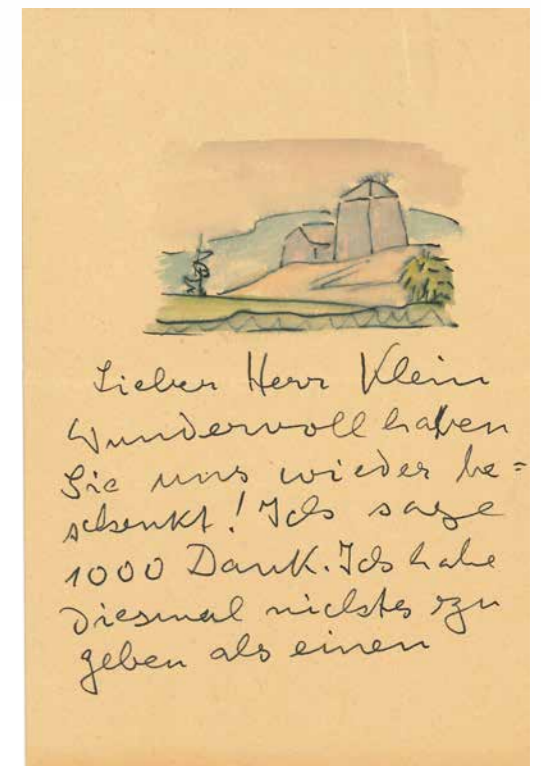 Lieber Herr Klein
Wundervoll haben
Sie uns wieder be=
schenkt! Ich sage
1000 Dank. Ich habe
diesmal nichts zu
geben als einen